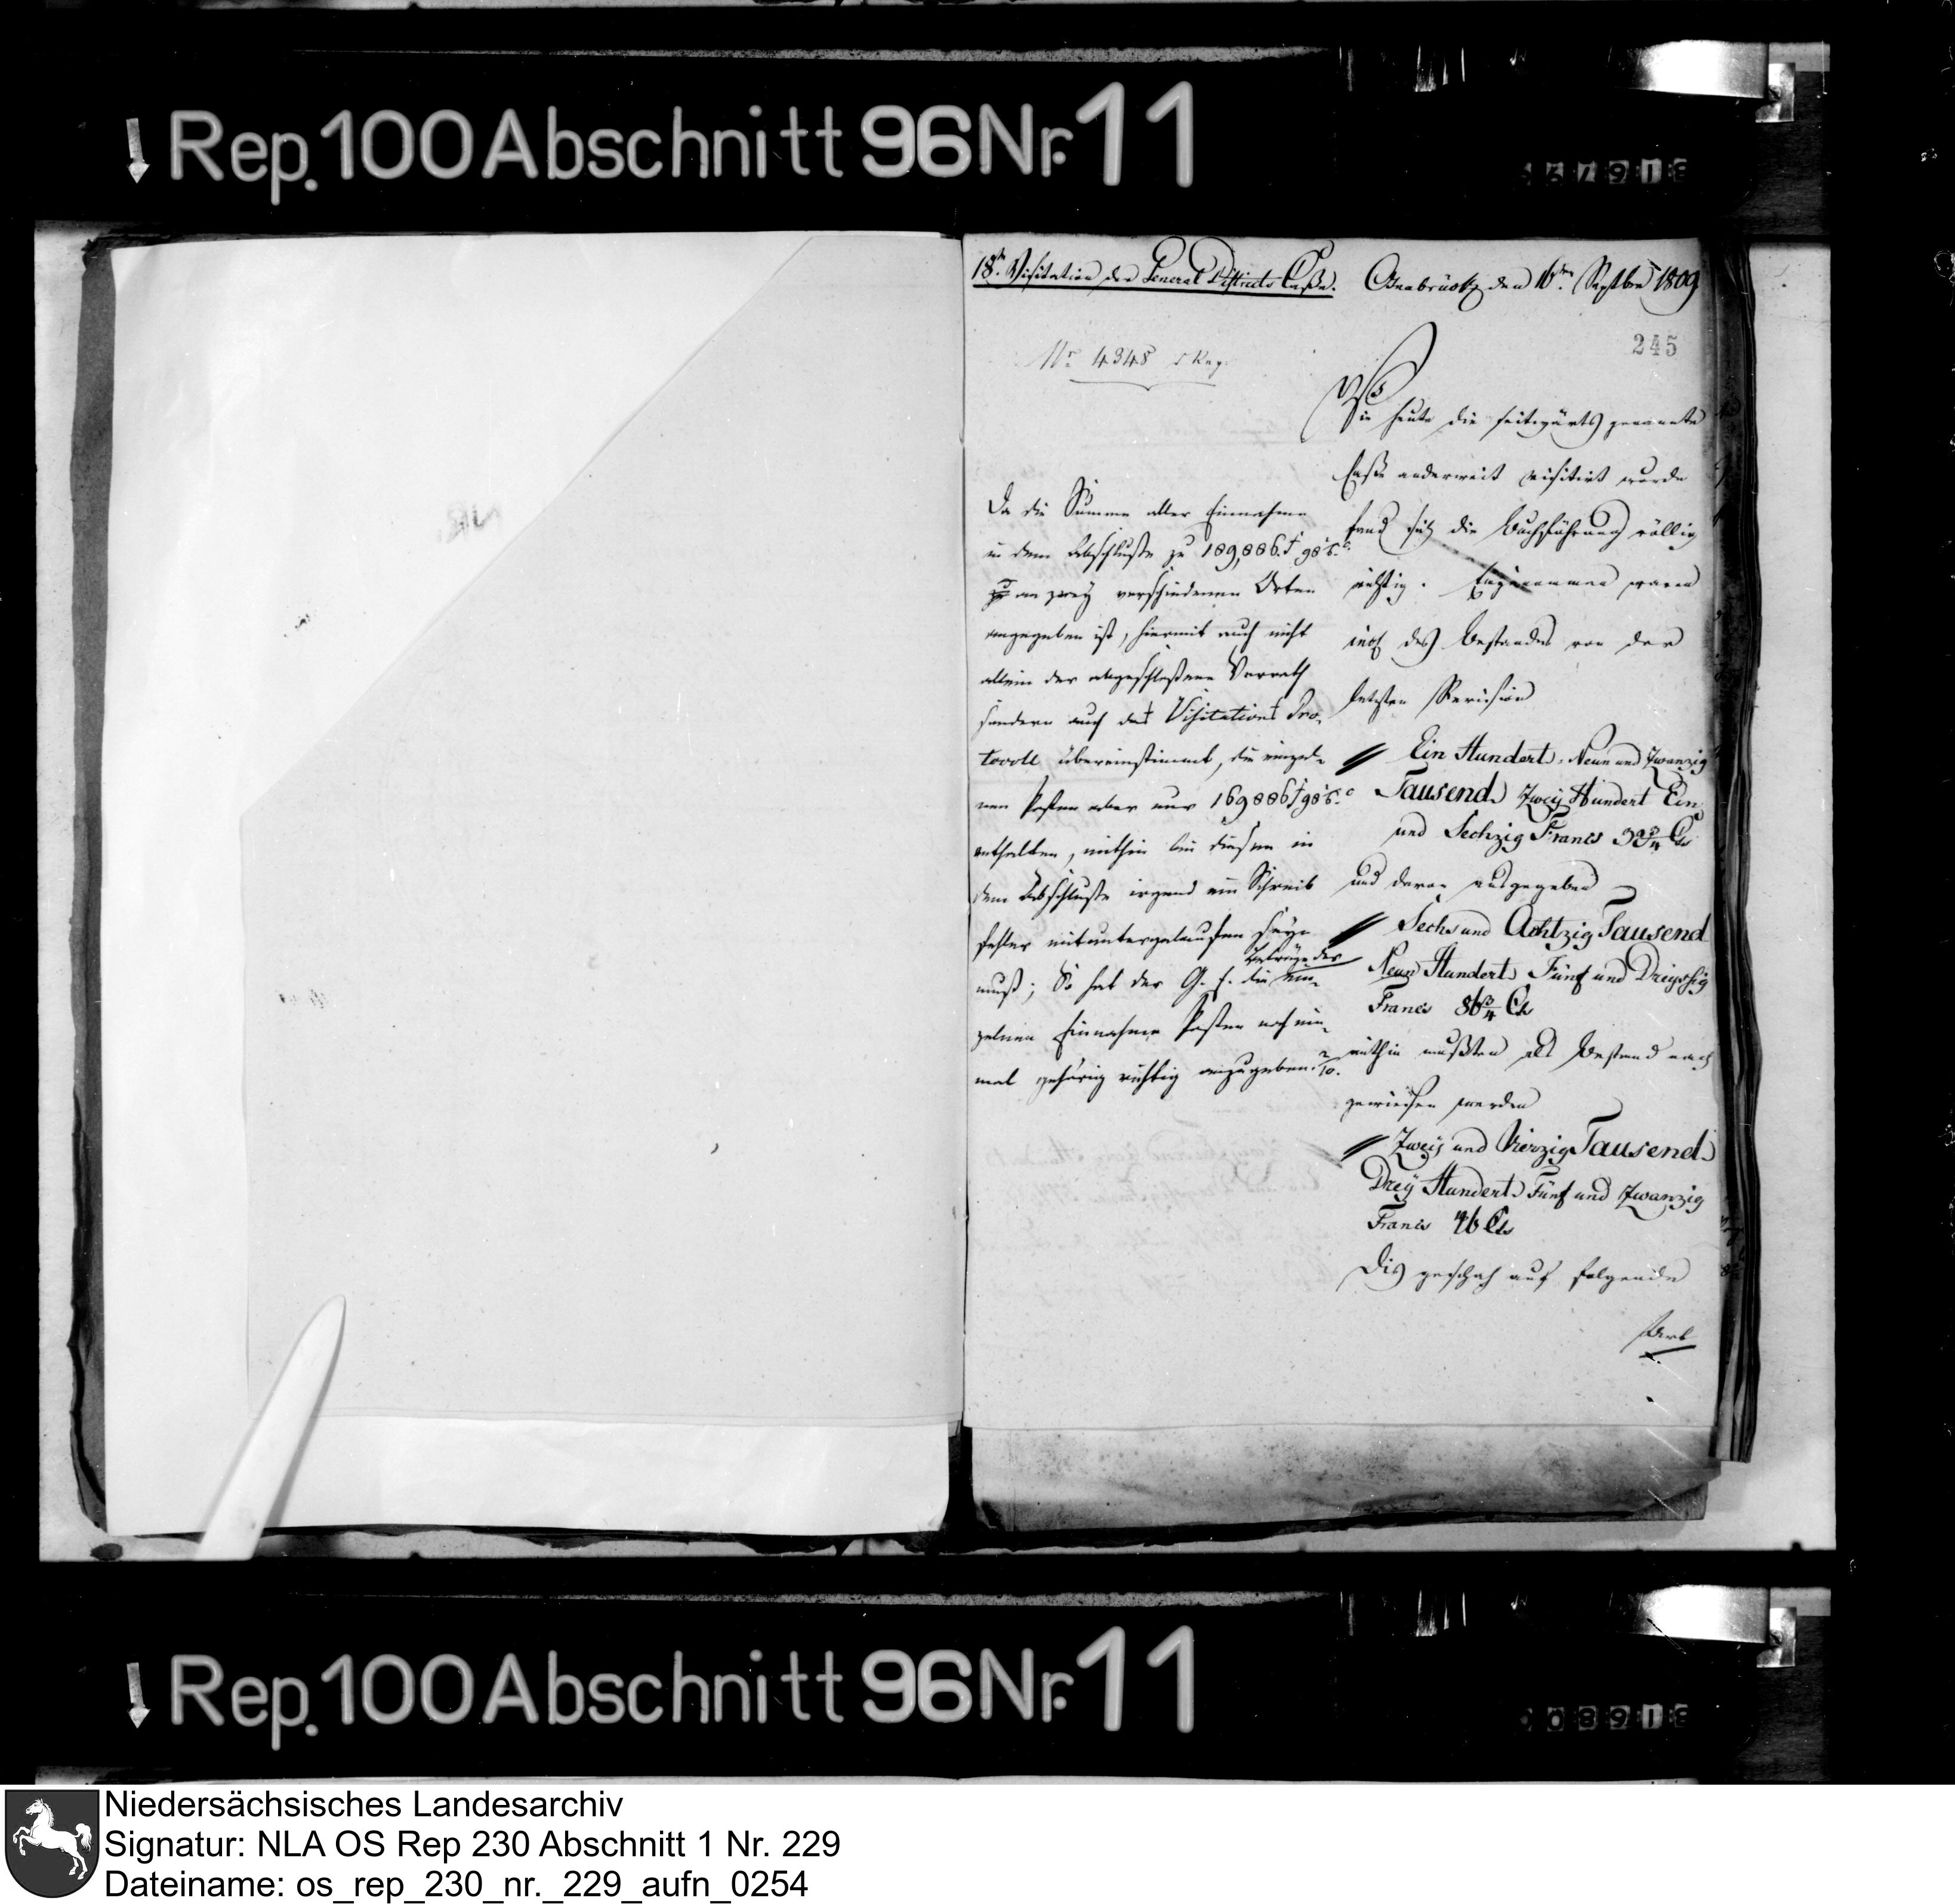 Rep. 100 Abschnitt 96 Nr. 11
18te Visitation der General Districts Casse.
Osnabrück den 16ten Septbr 1809
245
No 4345
Da die Summe aller Einnahme
in dem Abschlusse zu 189,886.
an zwey verschiedenen Orten
angegeben ist, hiermit auch nicht
allein der abgeschlossene Vorrath
sondern auch das Visitations Pro-
tocoll übereinstimmt, die einzel-
nen Posten aber nur 169886
enthalten, mithin bei diesen in
dem Abschlusse irgend ein Schreib
fehler mituntergelaufen seyn
muß; So hat der G. E. die
Beträge der
ein-
zelnen Einnahme Posten noch ein-
mal gehörig richtig anzugeben.
Wie heute die seitwärts genannte
Casse anderweit visitirt wurde
fand sich die Buchführung völlig
richtig. Eingenommen waren
incl. des Bestandes von der
letzten Revision
Ein Hundert Neun und Zwanzig
Tausend Zwey Hundert Ein
und Sechzig Francs
und davon ausgegeben
Sechs und Achtzig Tausend
Neun Hundert Fünf und Dreyssig
Francs 86 3/4 Cs
mithin mußten als Bestand nach
gewiesen werden
Zwey und Vierzig Tausend
Drey Hundert Fünf und Zwanzig
Francs 46 Cs
Dis geschah auf folgende
Art
Rep. 100 Abschnitt 96 Nr. 11
Niedersächsisches Landesarchiv
Signatur: NLA OS Rep 230 Abschnitt 1 Nr. 229
Dateiname: os_rep_230_nr._229_aufn_0254